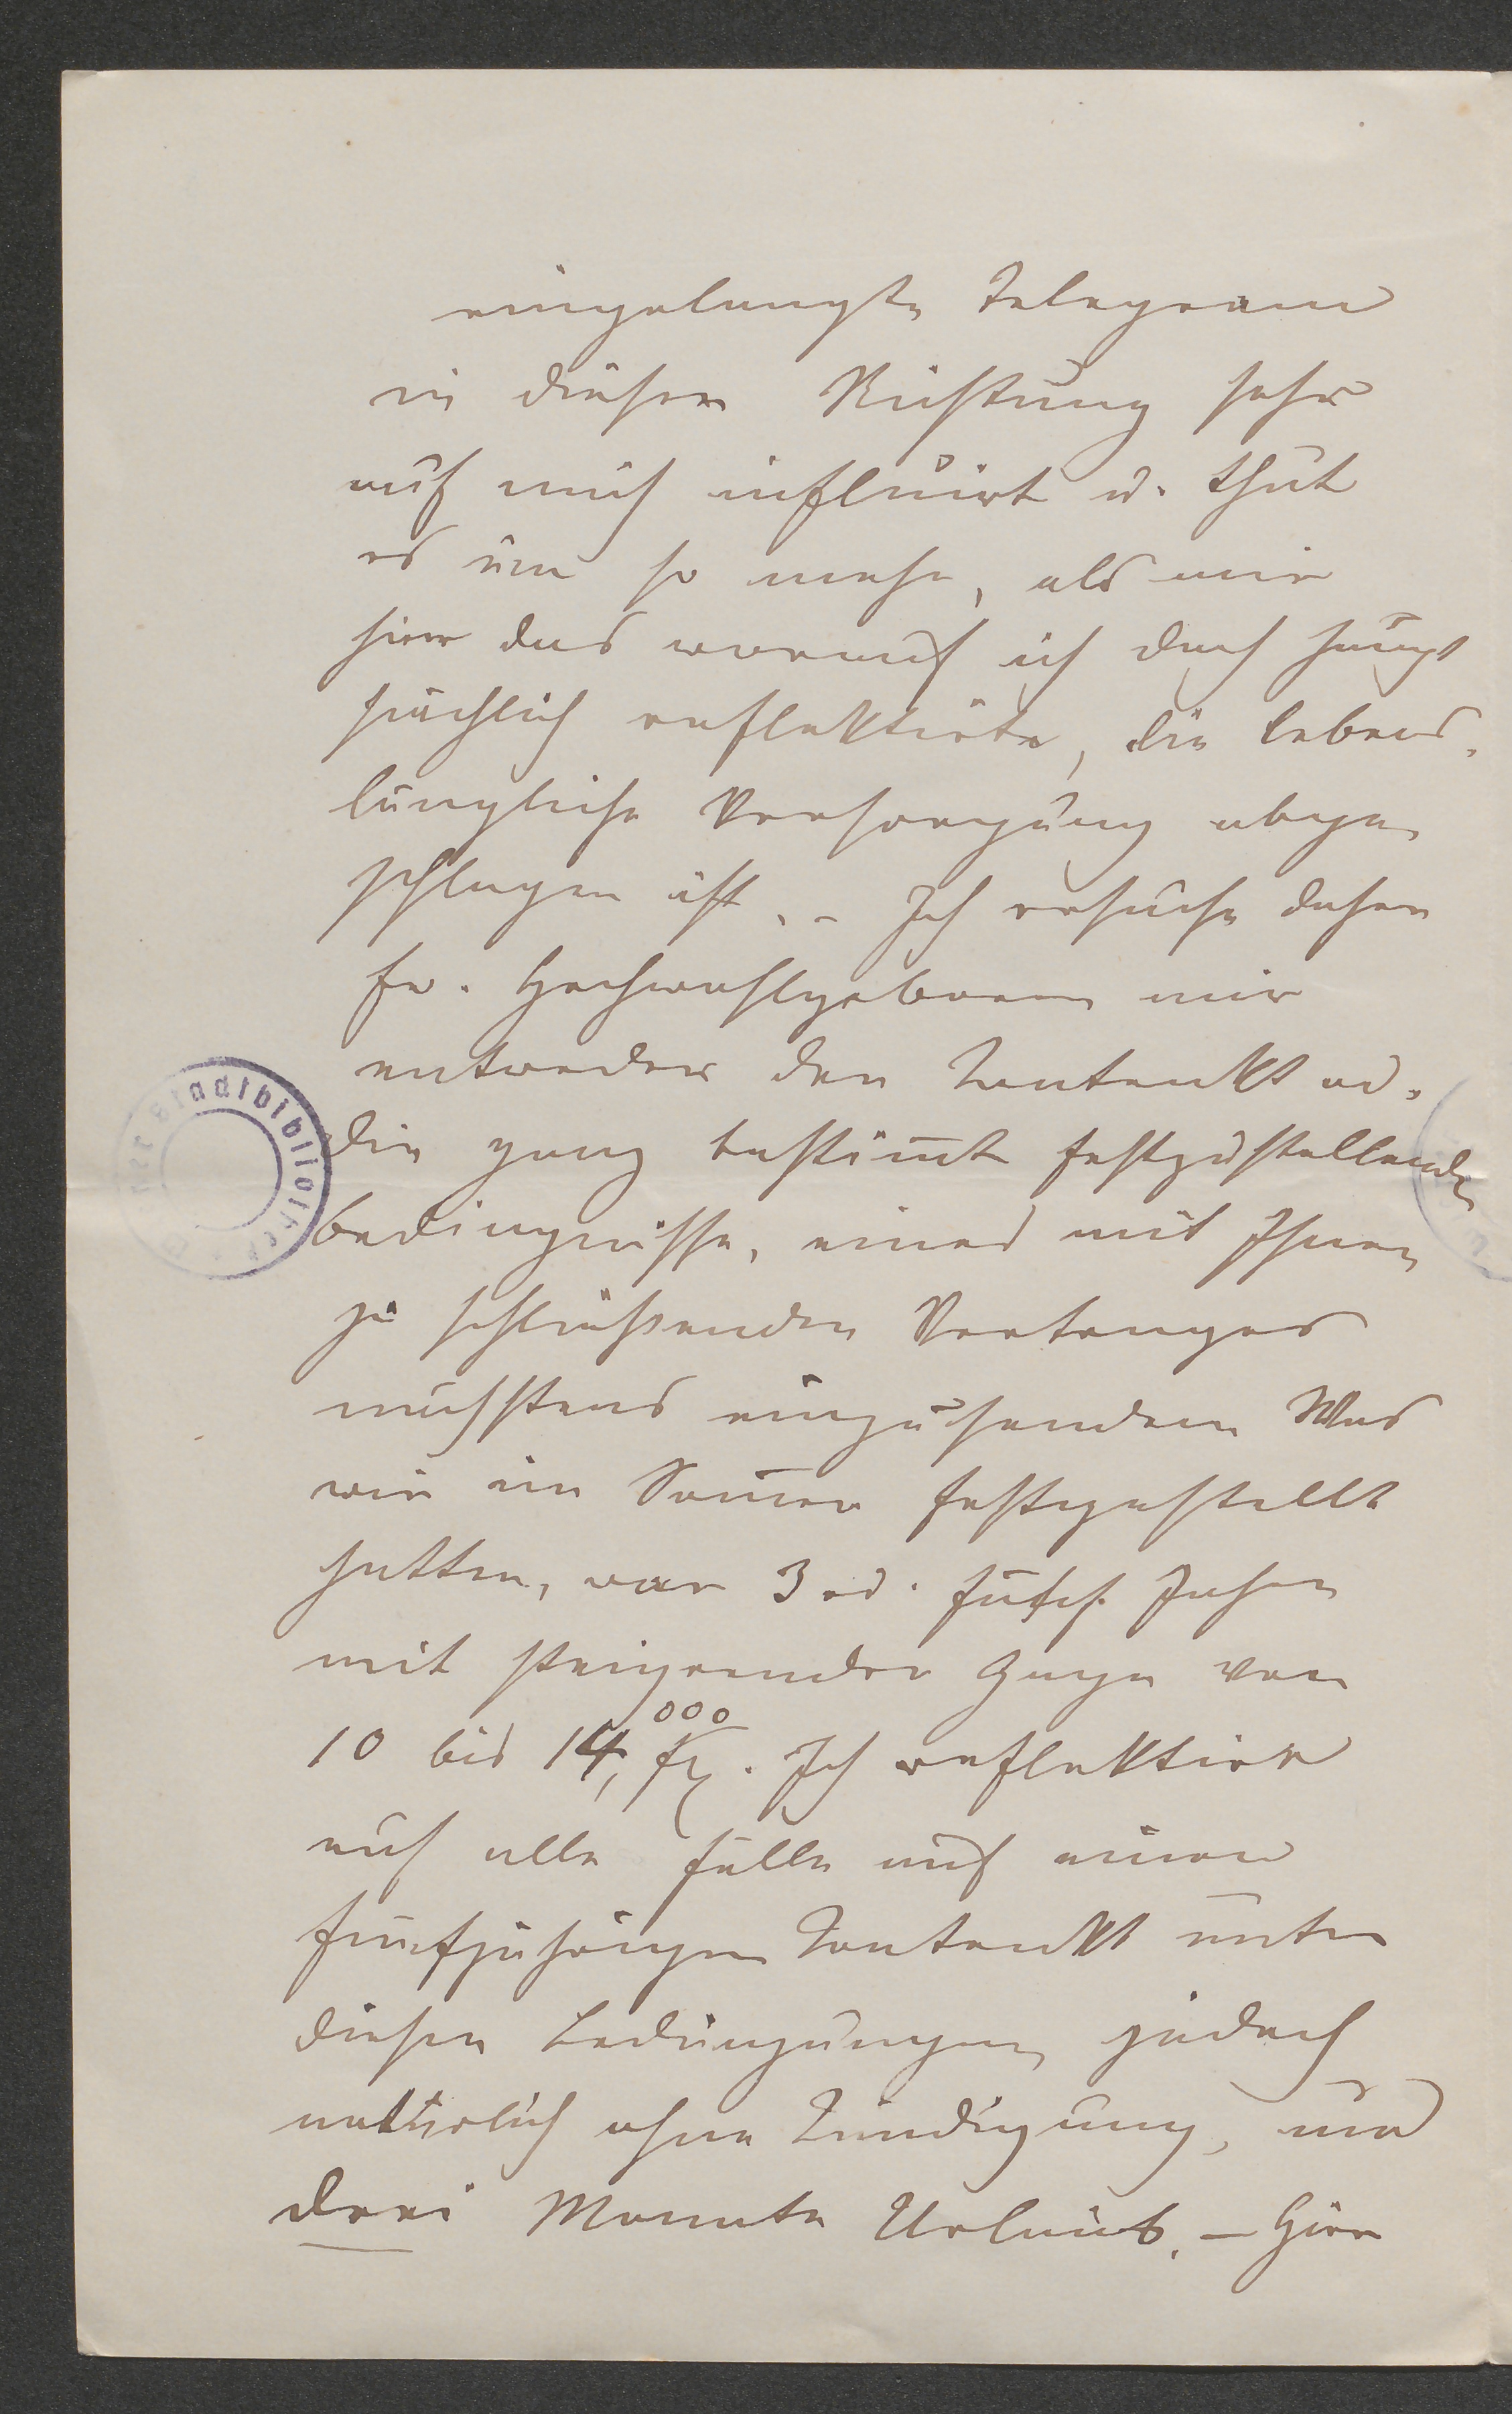 eingelangte Telegramm
in dieser Richtung sehr
auf mich influirt u. thut
es um so mehr, als mir
hier das worauf ich doch haupt
sächlich reflektirte, die lebens-
längliche Versorgung abge-
schlagen ist. – Ich ersuche daher
Ew. Hochwohlgeboren mir
entweder den Contrakt od.
die ganz bestim̅t festzustellenden
Bedingnisse, eines mit Ihnen
zu schließenden Vertrages
nächstens einzusenden. Was
wir im Som̅er festgestellt
hatten, war 3 od. fünf Jahre
mit steigender Gage von
10 bis 14,000 fl. Ich reflektire
auf alle Fälle auf einen
fünfjährigen Contrakt unter
diesen Bedingungen jedoch
natürlich ohne Kündigung, und
drei Monate Urlaub. – Hier
Stadtbibliothek